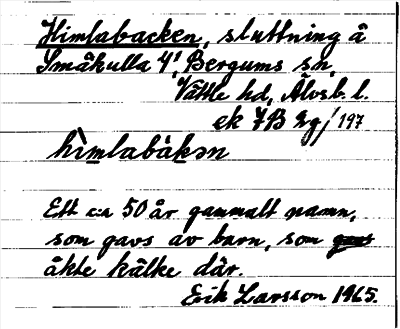 Himlabacken, sluttning å
Småkulla 4¹, Bergums sn,
Vättle hd, Älvsb. l.
ek 7B 2g/197
hìmlabàkən
Ett c:a 50 år gammalt namn,
som gavs av barn, som
åkte kälke där.
Erik Larsson 1965.